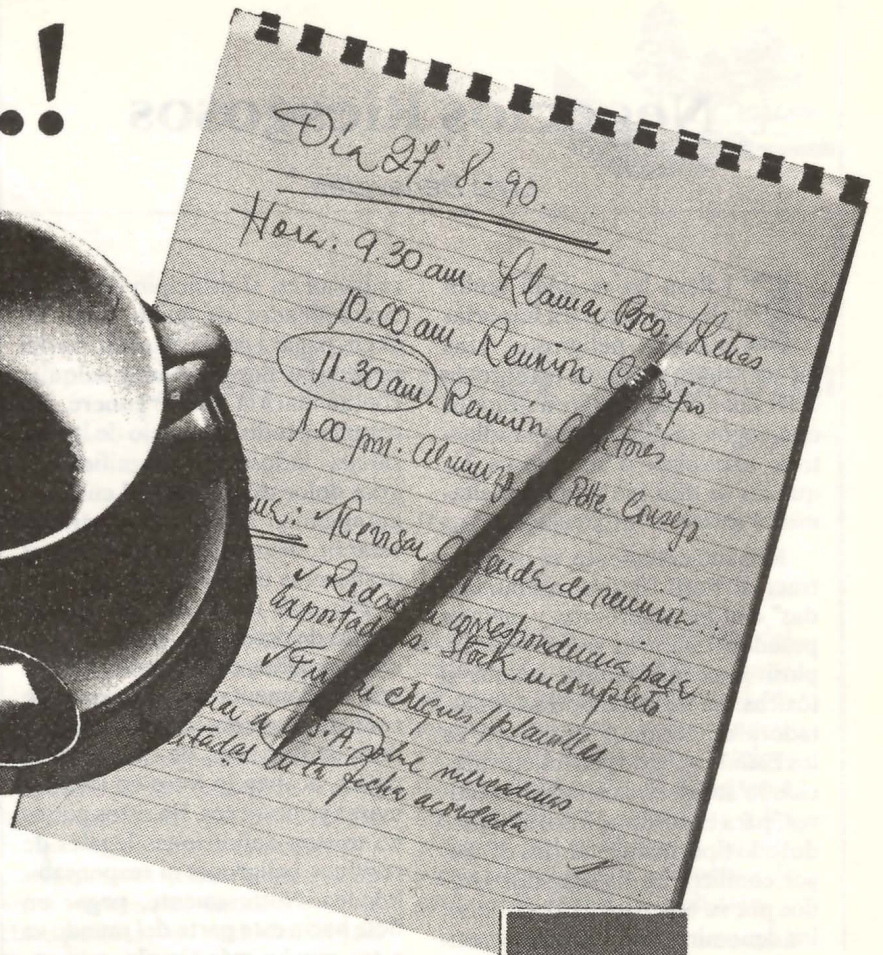 ..!
Día 27-8-90.
Hora: 9.30 am. Llamar Bco./Letras
10.00 am Reunión
11.30 am. Reunión
1.00 pm. Almuerzo Pdte. Consejo
Revisar Agenda de reunión
✓ Redactar correspondencia para
exportadores. Stock incompleto
✓ Firmar cheques/planillas
a U.S.A. sobre mercadería
en la fecha acordada